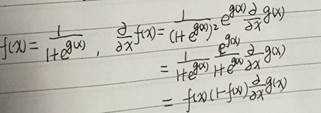 f(x) = 1/(1+e^{g(x)}), ∂/∂x f(x) = 1/(1+e^{g(x)})² e^{g(x)} ∂/∂x g(x)
= 1/(1+e^{g(x)}) e^{g(x)}/(1+e^{g(x)}) ∂/∂x g(x)
= f(x)(1-f(x)) ∂/∂x g(x)